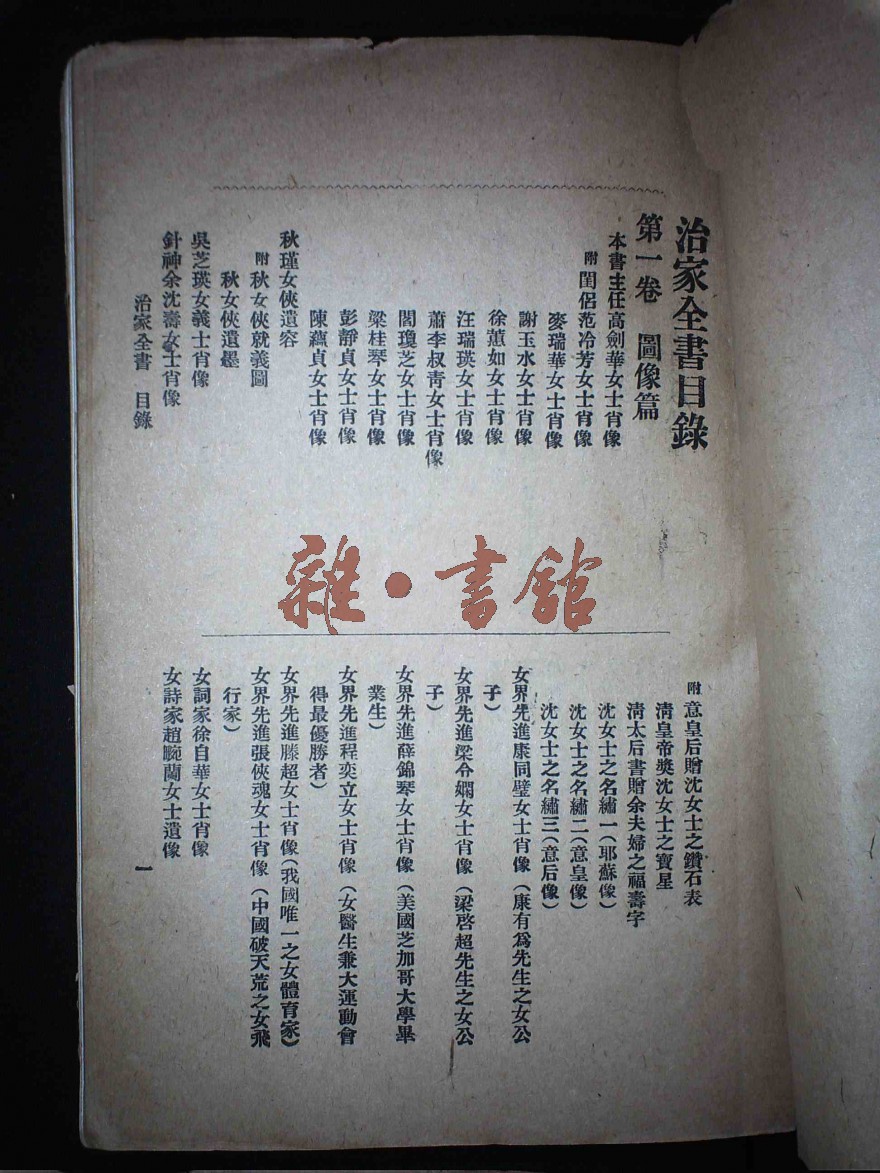 治家全書目錄
第一卷 圖像篇
本書主任高劍華女士肖像
附閨侶范冷芳女士肖像
麥瑞華女士肖像
謝玉水女士肖像
徐蕙如女士肖像
汪瑞瑛女士肖像
蕭李叔靑女士肖像
閻瓊芝女士肖像
梁桂琴女士肖像
彭靜貞女士肖像
陳蘊貞女士肖像
秋瑾女俠遺容
附秋女俠就義圖
秋女俠遺墨
吳芝瑛女義士肖像
針神余沈壽女士肖像
治家全書 目錄
雜·書館
附意皇后贈沈女士之鑽石表
淸皇帝獎沈女士之寶星
淸太后書贈余夫婦之福壽字
沈女士之名繡一(耶蘇像)
沈女士之名繡二(意皇像)
沈女士之名繡三(意后像)
女界先進康同璧女士肖像(康有爲先生之女公
子)
女界先進梁令嫻女士肖像(梁啓超先生之女公
子)
女界先進薛錦琴女士肖像(美國芝加哥大學畢
業生)
女界先進程奕立女士肖像(女醫生兼大運動會
得最優勝者)
女界先進滕超女士肖像(我國唯一之女體育家)
女界先進張俠魂女士肖像(中國破天荒之女飛
行家)
女詞家徐自華女士肖像
女詩家趙畹蘭女士遺像
一